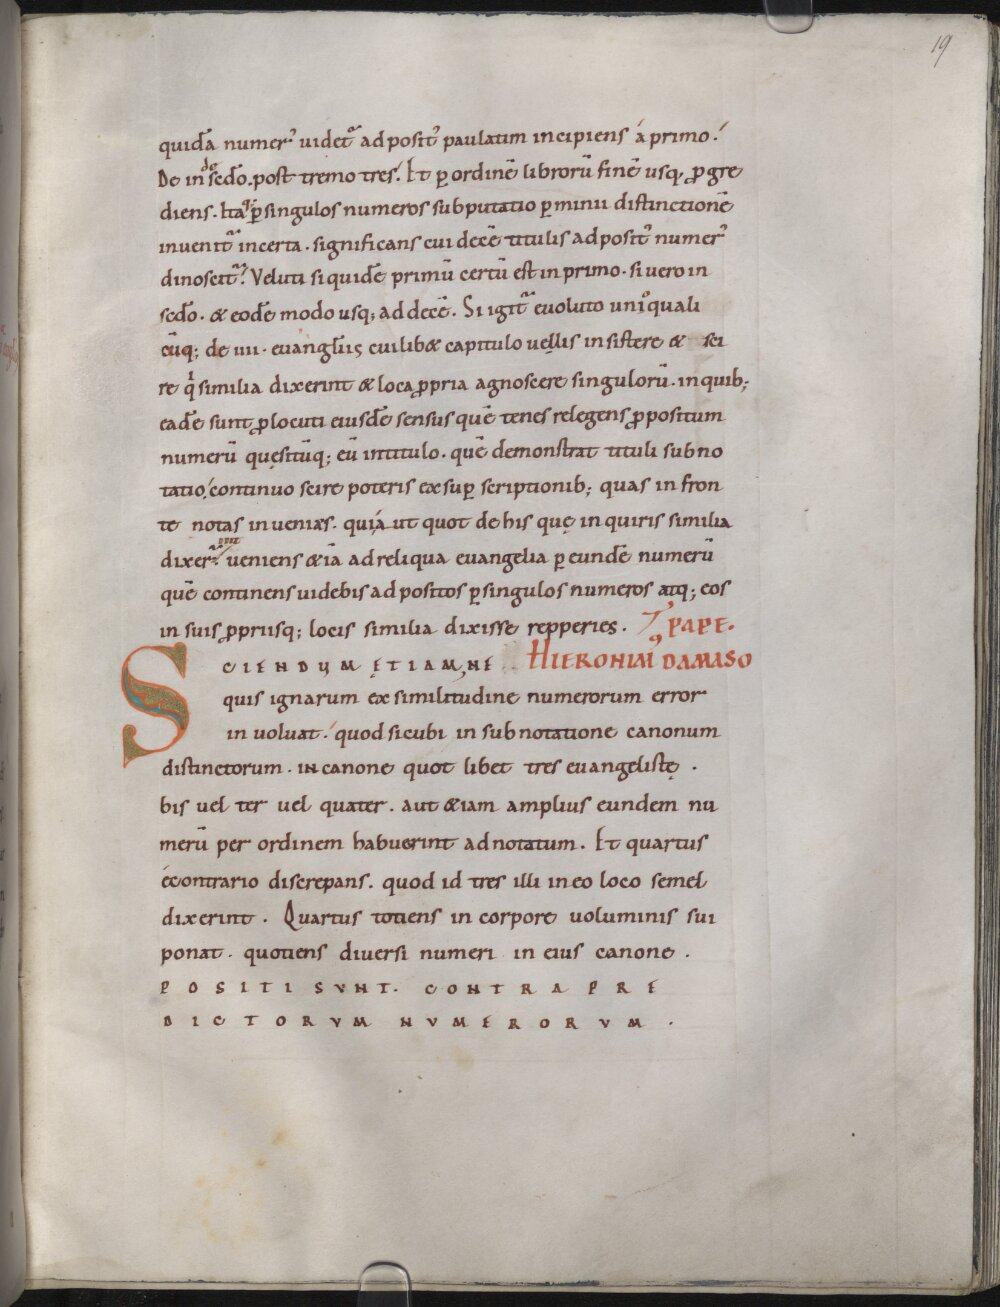 19
quidā numer᾽ uidet᷒ adposit᾽ paulatim incipiens á primo.
De inde sēdo. post tremo tres. Et ꝑ ordinē librorū finē usq; ꝓgre
diens. Ita q; ꝑ singulos numeros subputatio ꝑ minii distinctionē
inuenit᷒ incerta. significans cui decē titulis adposit᾽ numer᾽
dinoscit᷒. Veluti siquidē primū certū est in primo. si uero in
sēdo. & eodē modo usq; ad decē. Si igit᷒ euoluto uno quali
cūq; de IIII. euangliis cuilib& capitulo uellis insistere & sci
re q̇ similia dixerint & loca ꝓpria agnoscere singulorū. in quib;
eadē sunt ꝓlocuti eiusdē sensus quē tenes relegens ꝓpositum
numerū quęsitūq; eū in titulo. quē demonstrat tituli subno
tatio continuo scire poteris ex suꝑ scriptionib; quas in fron
te notas inuenias. quia ut quot de his quę inquiris similia
dixer᷒ ueniens &iā ad reliqua euangelia ꝑ eundē numerū
quē continens uidebis adpositos ꝑ singulos numeros atq; eos
in suis ꝓpriisq; locis similia dixisse repperies. PAPE.
SCIENDUM ĘTIAM, NE HIERONIMI DAMASO
quis ignarum ex similitudine numerorum error
inuoluat. quod sicubi in subnotatione canonum
distinctorum. in canone quot libet tres euangelistę.
bis uel ter uel quater. aut &iam amplius eundem nu
merū per ordinem habuerint adnotatum. Et quartus
écontrario discrepans. quod id tres illi in eo loco semel
dixerint. Quartus totiens in corpore uoluminis sui
ponat. quotiens diuersi numeri in eius canone.
POSITI SUNT. CONTRA PRE
DICTORUM NUMERORUM.